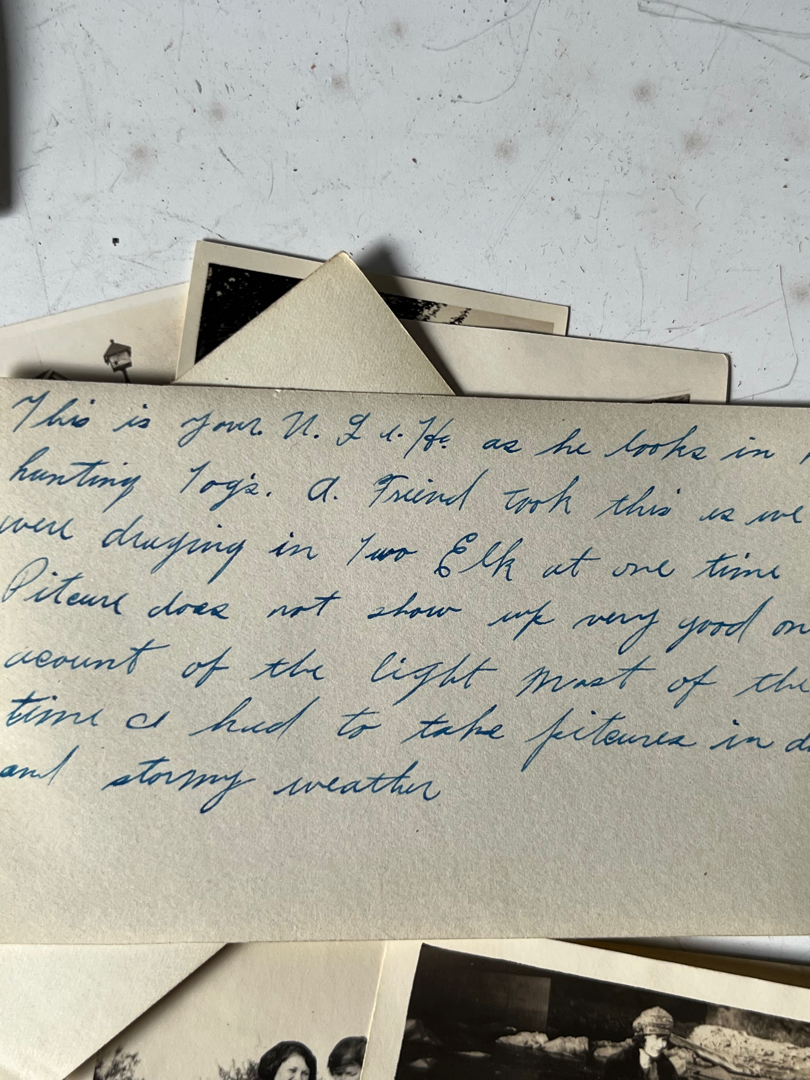 This is your N. L. & H. as he looks in
hunting Tog's. A. Friend took this as we
were draging in Two Elk at one time
Pitcure does not show up very good on
acount of the light most of the
time I had to take pitcures in
and stormy weather